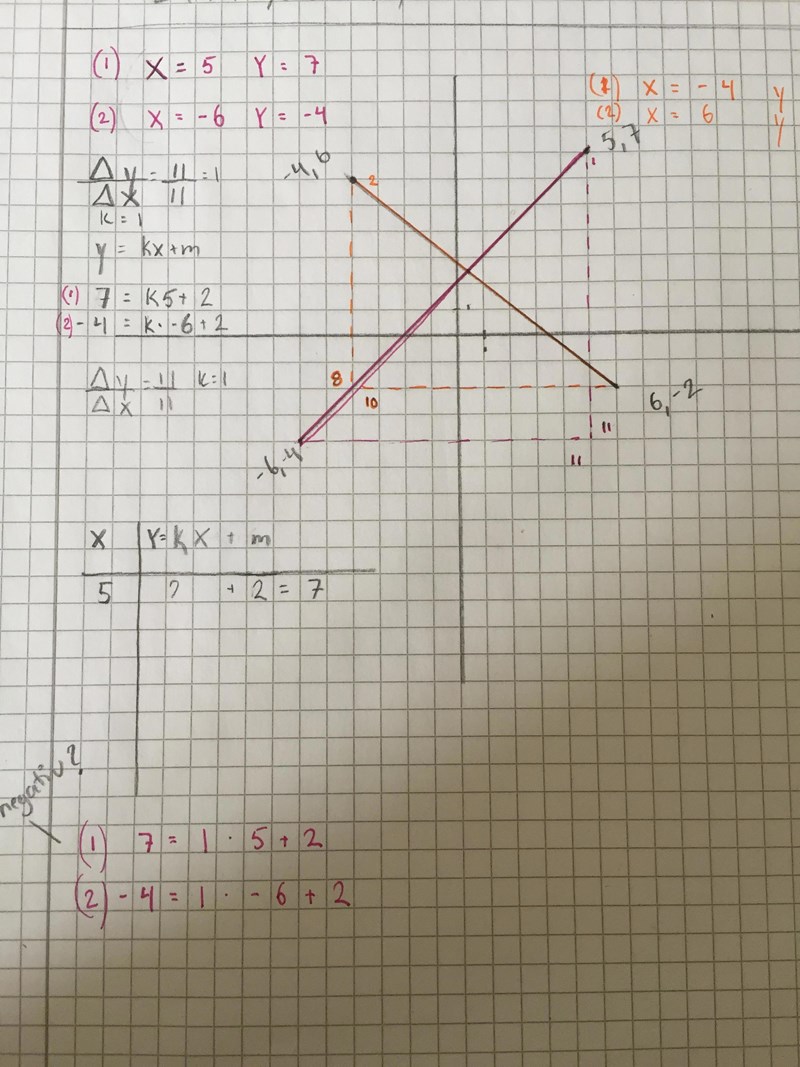 (1) X = 5 Y = 7
(2) X = -6 Y = -4
(1) X = -4 Y
(2) X = 6 Y
Δy/Δx = 11/11 = 1
k = 1
y = kx+m
(1) 7 = k5+2
(2) -4 = k·-6+2
Δy/Δx = 11/11 k=1
-4,6
2
5,7
1
8
10
6,-2
11
11
-6,-4
X Y=kX + m
5 ? + 2 = 7
negativ?
(1) 7 = 1 · 5 + 2
(2) -4 = 1 · -6 + 2